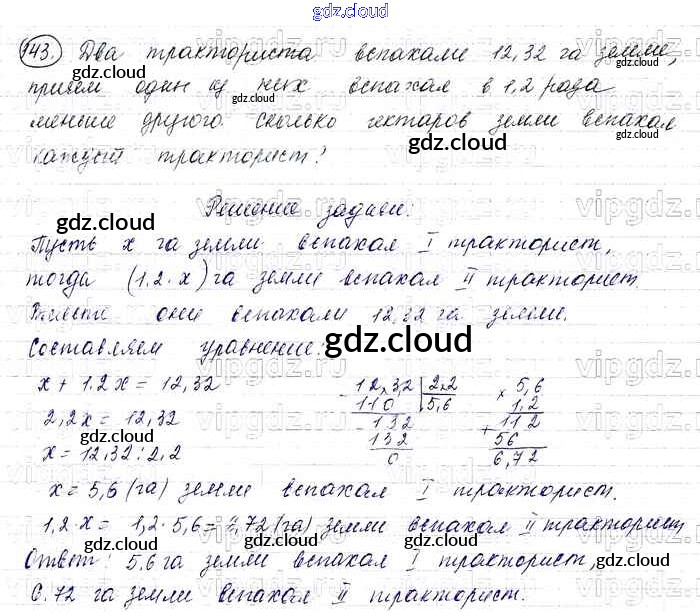 gdz.cloud
143. Два тракториста вспахали 12,32 га земли,
причем один из них вспахал в 1,2 раза
меньше другого. Сколько гектаров земли вспахал
каждый тракторист?
Решение задачи:
Пусть x га земли вспахал I тракторист,
тогда (1,2·x) га земли вспахал II тракторист
Вместе они вспахали 12,32 га земли.
Составляем уравнение:
x + 1,2x = 12,32
2,2x = 12,32
x = 12,32 : 2,2
12,32 | 2,2
110 | 5,6
132
132
0
5,6
× 1,2
112
+ 56
6,72
x = 5,6 (га) земли вспахал I тракторист.
1,2·x = 1,2·5,6 = 6,72 (га) земли вспахал II тракторист
Ответ: 5,6 га земли вспахал I тракторист,
6.72 га земли вспахал II тракторист.
gdz.cloud
vipgdz.ru